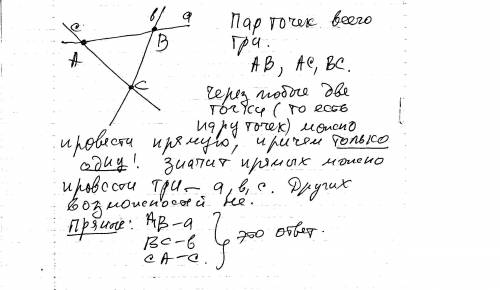 c
A
b
a
B
C
Пар точек всего
три.
AB, AC, BC.
Через любые две
точки (то есть
пару точек) можно
провести прямую, причем только
одну! Значит прямых можно
провести три – a, b, c. Других
возможностей не.
Прямые: AB – a
BC – b
CA – c.
это ответ.